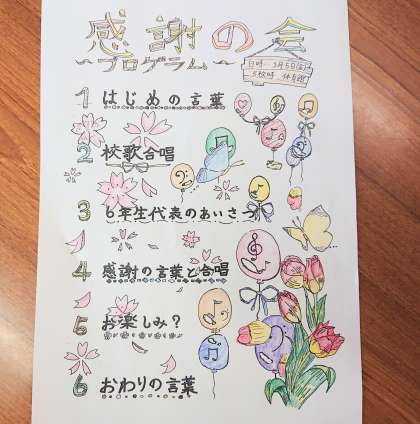 感謝の会
～プログラム～
日時…3月5日(金)
5校時 体育館
1 はじめの言葉
2 校歌合唱
3 6年生代表のあいさつ
4 感謝の言葉と合唱
5 お楽しみ?
6 おわりの言葉